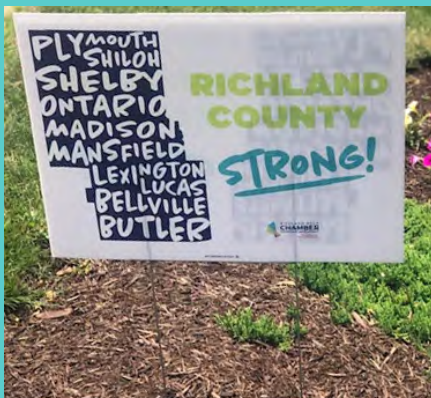 PLYMOUTH
SHILOH
SHELBY
ONTARIO
MADISON
MANSFIELD
LEXINGTON
LUCAS
BELLVILLE
BUTLER
RICHLAND
COUNTY
STRONG!
CHAMBER